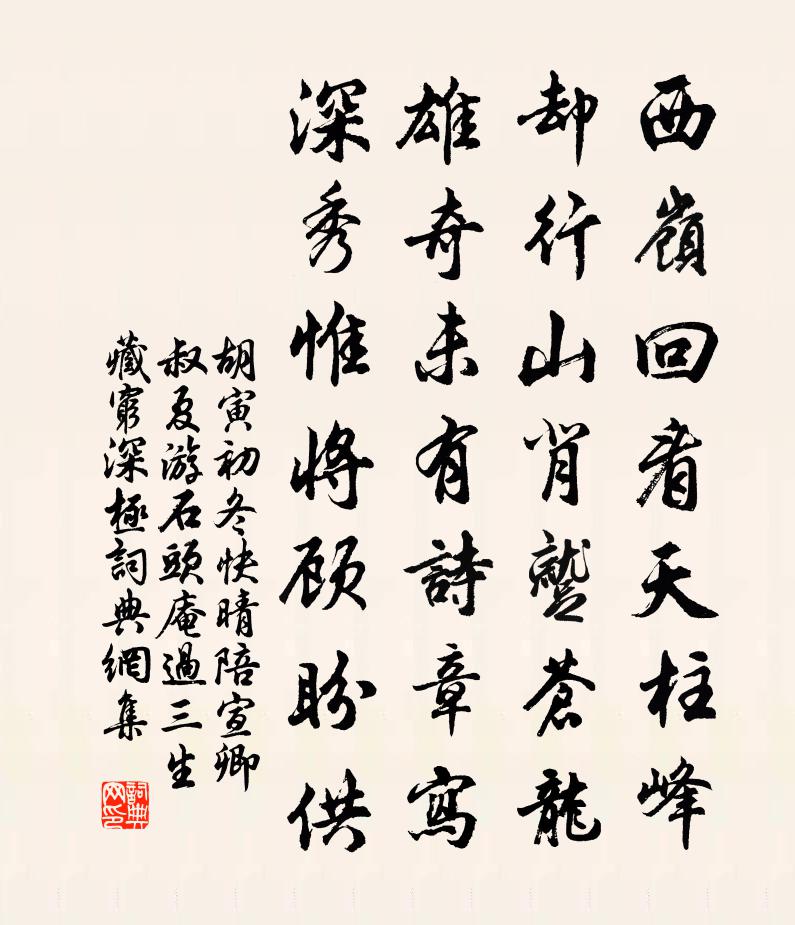 西嶺回看天柱峰
却行山背蹙蒼龍
雄奇未有詩章寫
深秀惟將顾盼供
胡寅初冬快晴陪宣卿
叔夏游石頭庵過三生
藏窮深極詞典網集
詞典网印